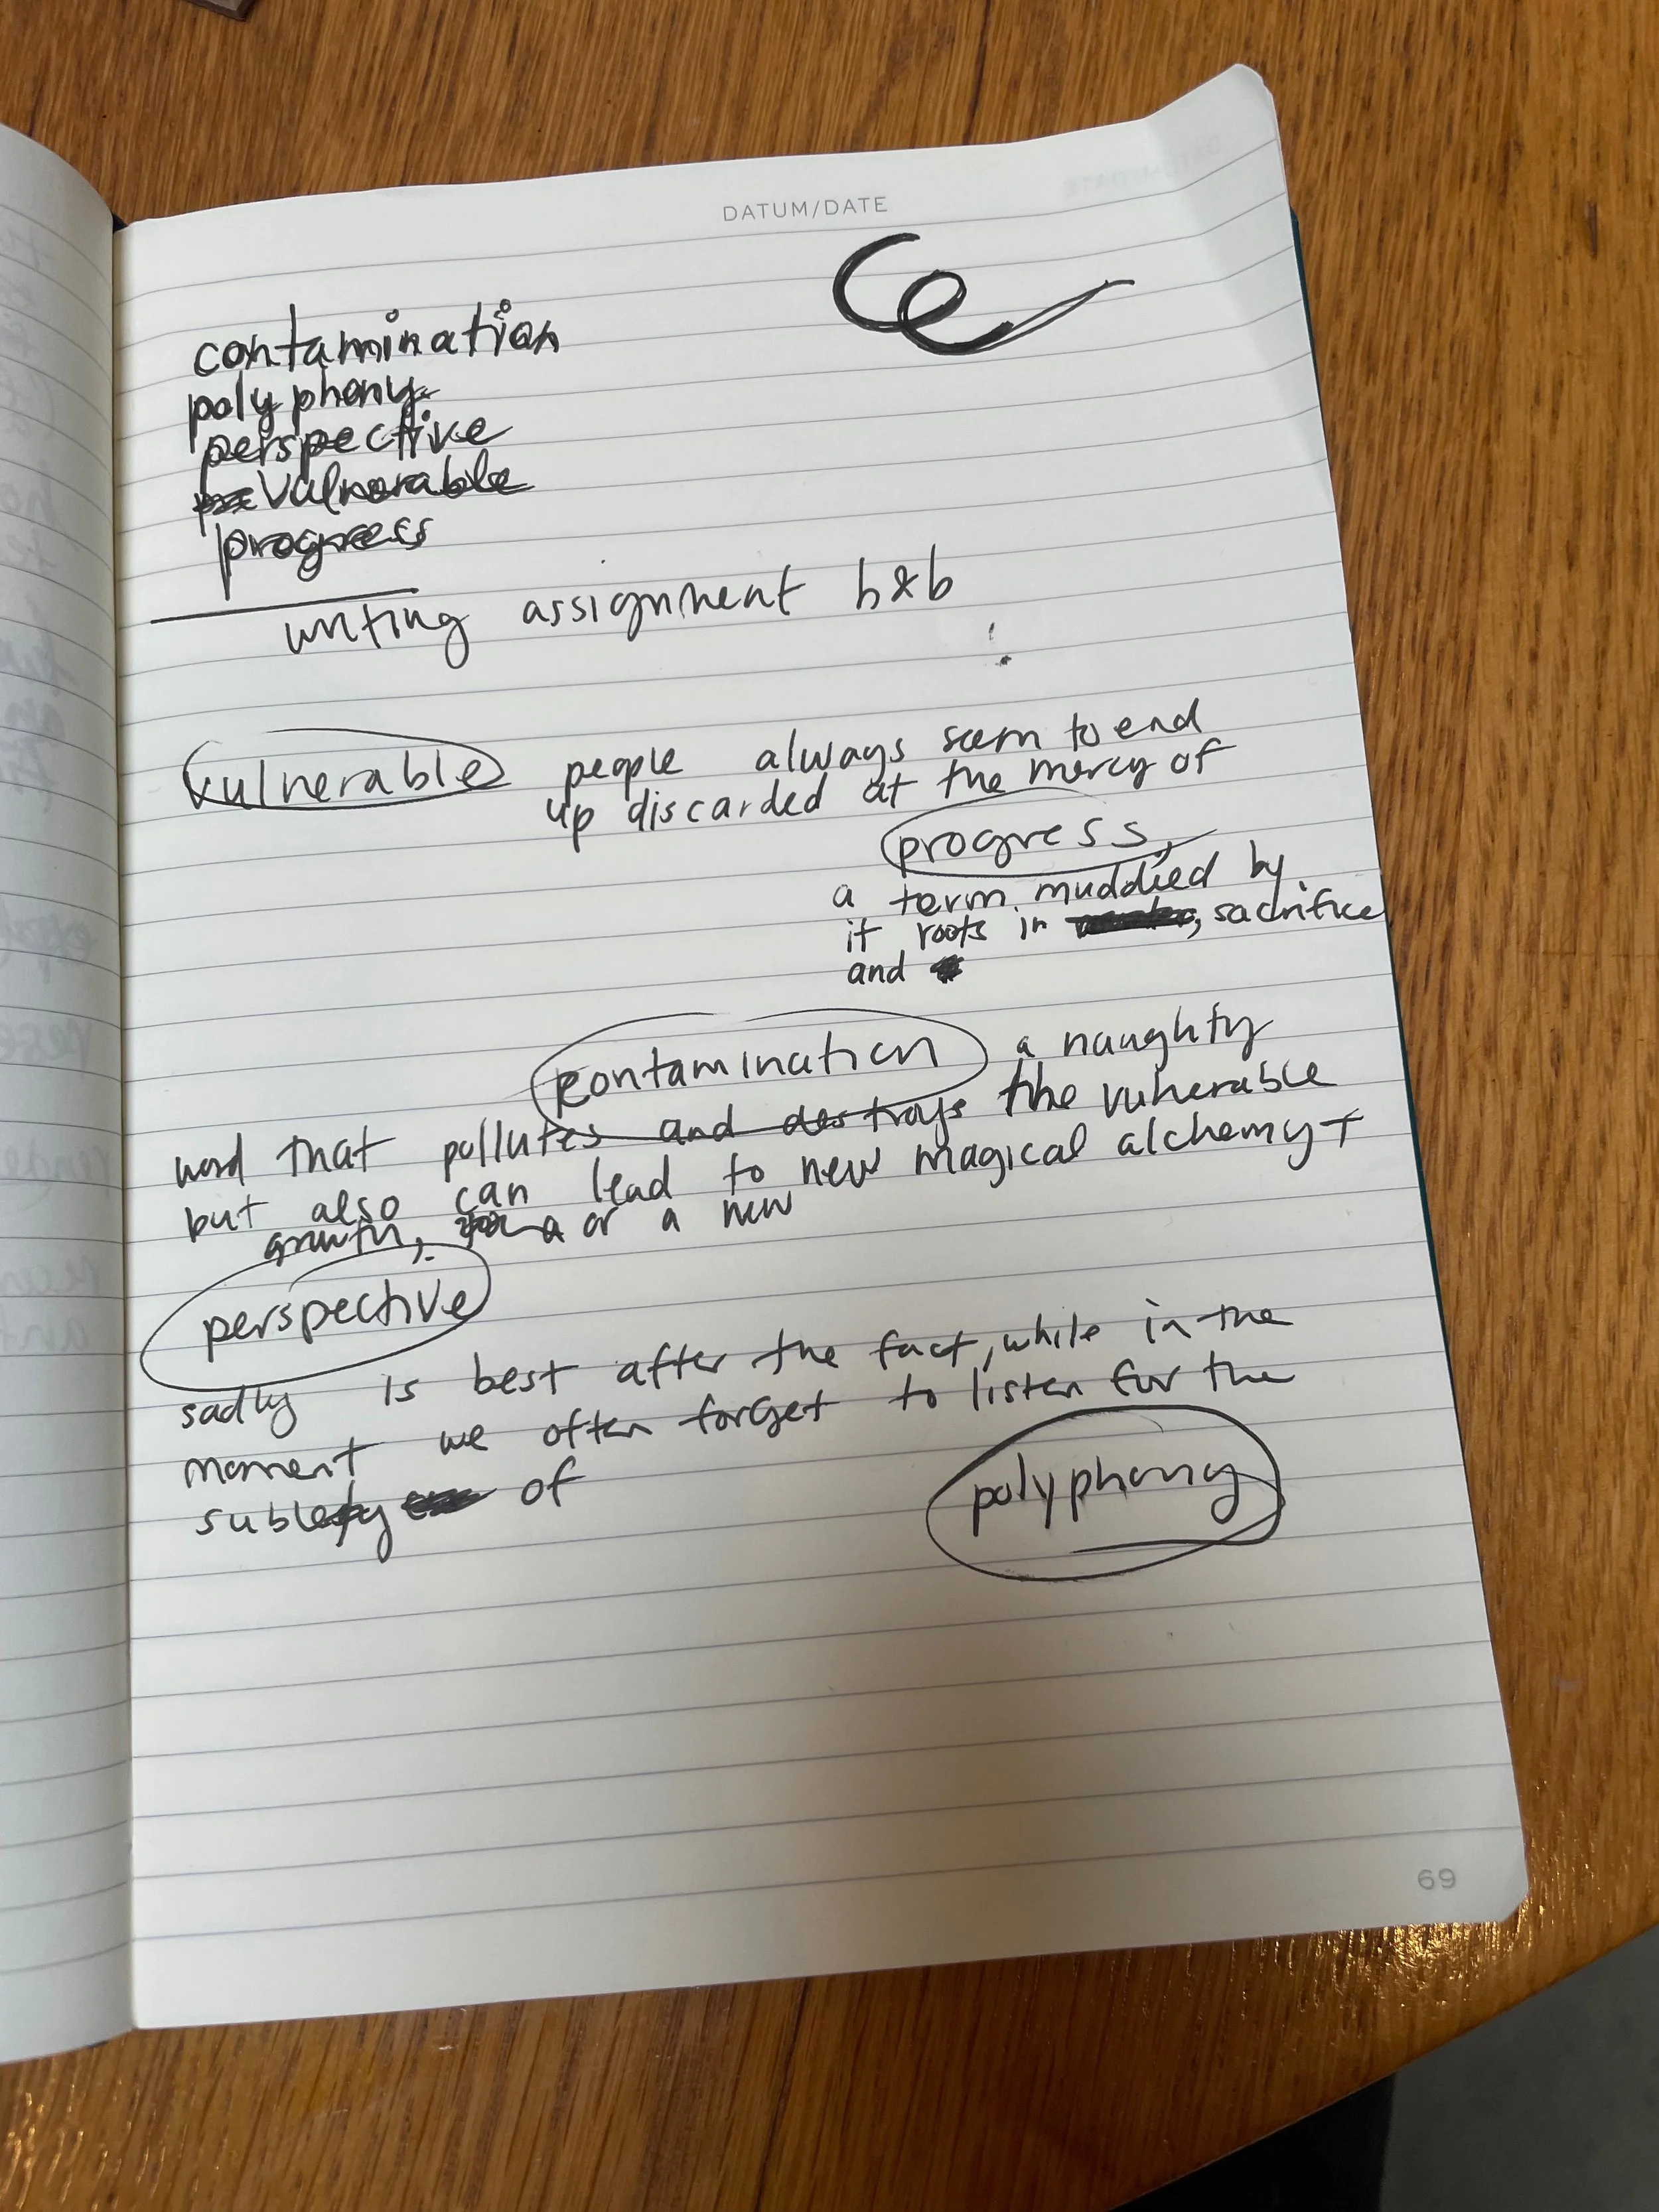 DATUM/DATE
contamination
polyphony
perspective
vulnorable
progress
writing assignment b&b
vulnerable people always seem to end
up discarded at the mercy of
progress,
a term muddied by
it roots in sacrifice
and
contamination a naughty
word that pollutes and destroys the vulnerable
but also can lead to new magical alchemy +
growth, or a new
perspective
sadly is best after the fact, while in the
moment we often forget to listen for the
sublety of
polyphony
69